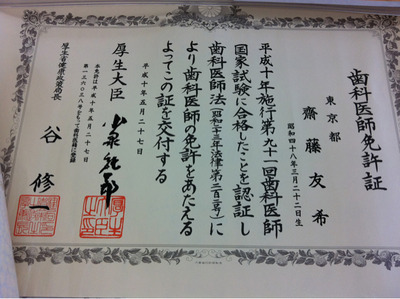 歯科医師免許証
東京都
齋藤友希
昭和四十八年三月二十二日生
平成十年施行第九十一回歯科医師
国家試験に合格したことを認証し
歯科医師法（昭和二十三年法律第二百二号）に
より歯科医師の免許をあたえる
よってこの証を交付する
平成十年五月二十七日
厚生大臣 小泉純一郎
本免許は平成十年五月二十七日
第一三六〇三八号をもって歯科医籍に登録
厚生省健康政策局長
谷修一